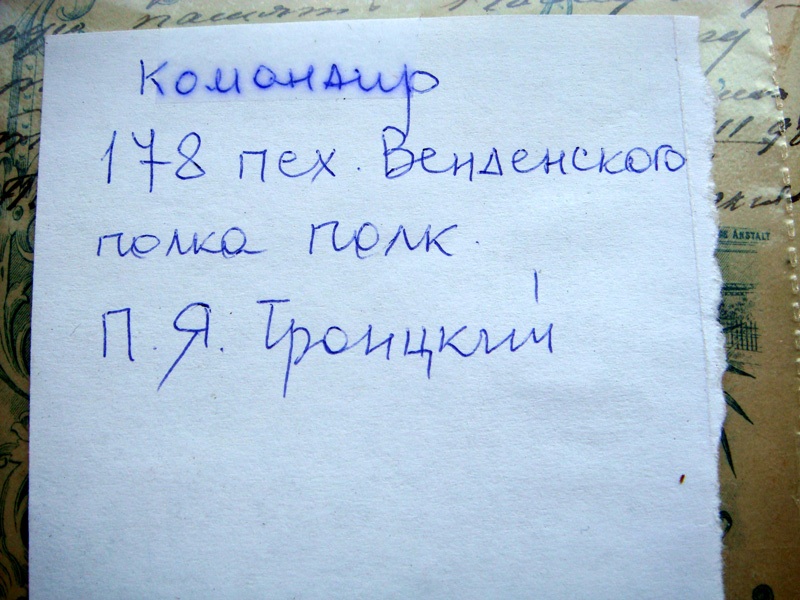 Командир
178 пех. Венденского
полка полк.
П. Я. Троицкий
DE ANSTALT